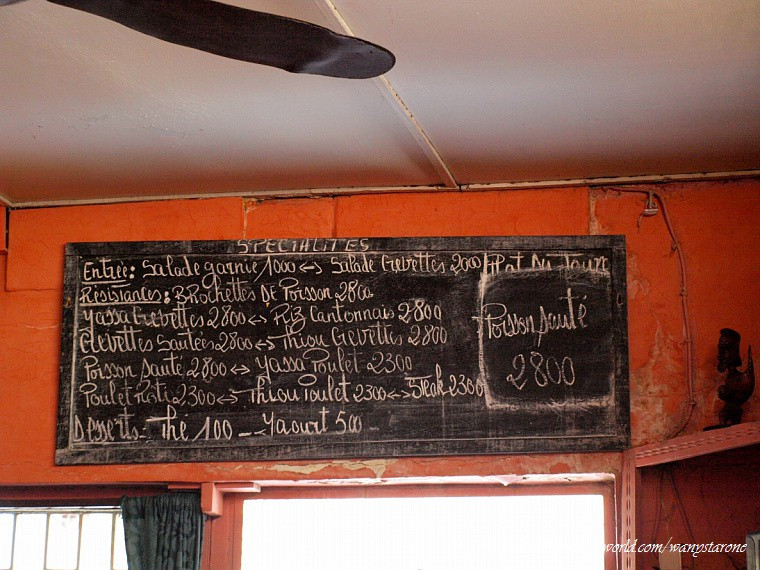 SPECIALITES
Entrée: Salade garnie 1000 <-> Salade Crevettes 2000
Résistances: BRochettes De Poisson 2800
Yassa Crevettes 2800 <-> Riz Cantonnais 2800
Crevettes Sautées 2800 <-> Thiou Crevettes 2800
Poisson Sauté 2800 <-> Yassa Poulet 2300
Poulet Roti 2300 <-> Thiou Poulet 2300 <-> Steak 2300
Desserts - Thé 100 - Yaourt 500 -
Plat Du Jour
Poisson Sauté
2800
world.com/wanystarone